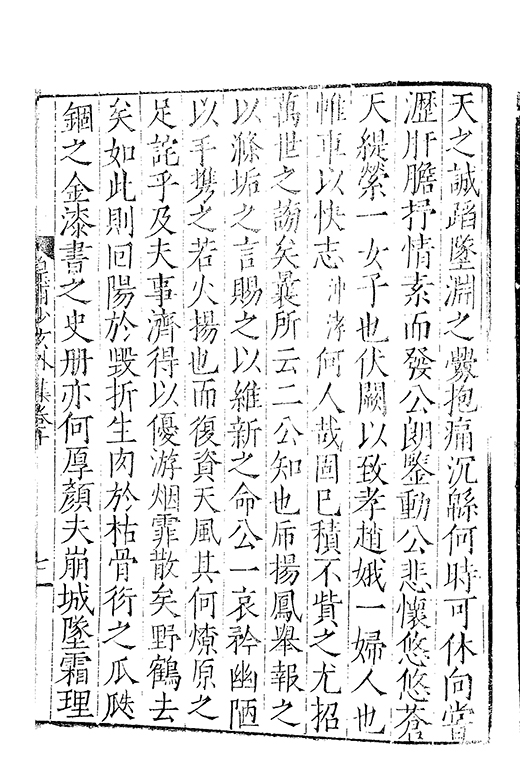 天之誠蹈墜淵之釁抱痛沉緜何時可休向嘗
瀝肝膽抒情素而發公朗鑒動公悲懷悠悠蒼
天緹縈一女子也伏闕以致孝趙娥一婦人也
帷車以快志沖涬何人哉固已積不貲之尤招
萬世之謗矣曩所云二公知也帋揚鳳舉報之
以滌垢之言賜之以維新之命公一哀矜幽陋
以手攜之若火揚也而復資天風其何燎原之
足詫乎及夫事濟得以優游烟霏散矣野鶴去
矣如此則回陽於毀折生肉於枯骨衍之瓜瓞
錮之金漆書之史册亦何厚顏夫崩城墜霜理
皇甫少玄外集卷十
七